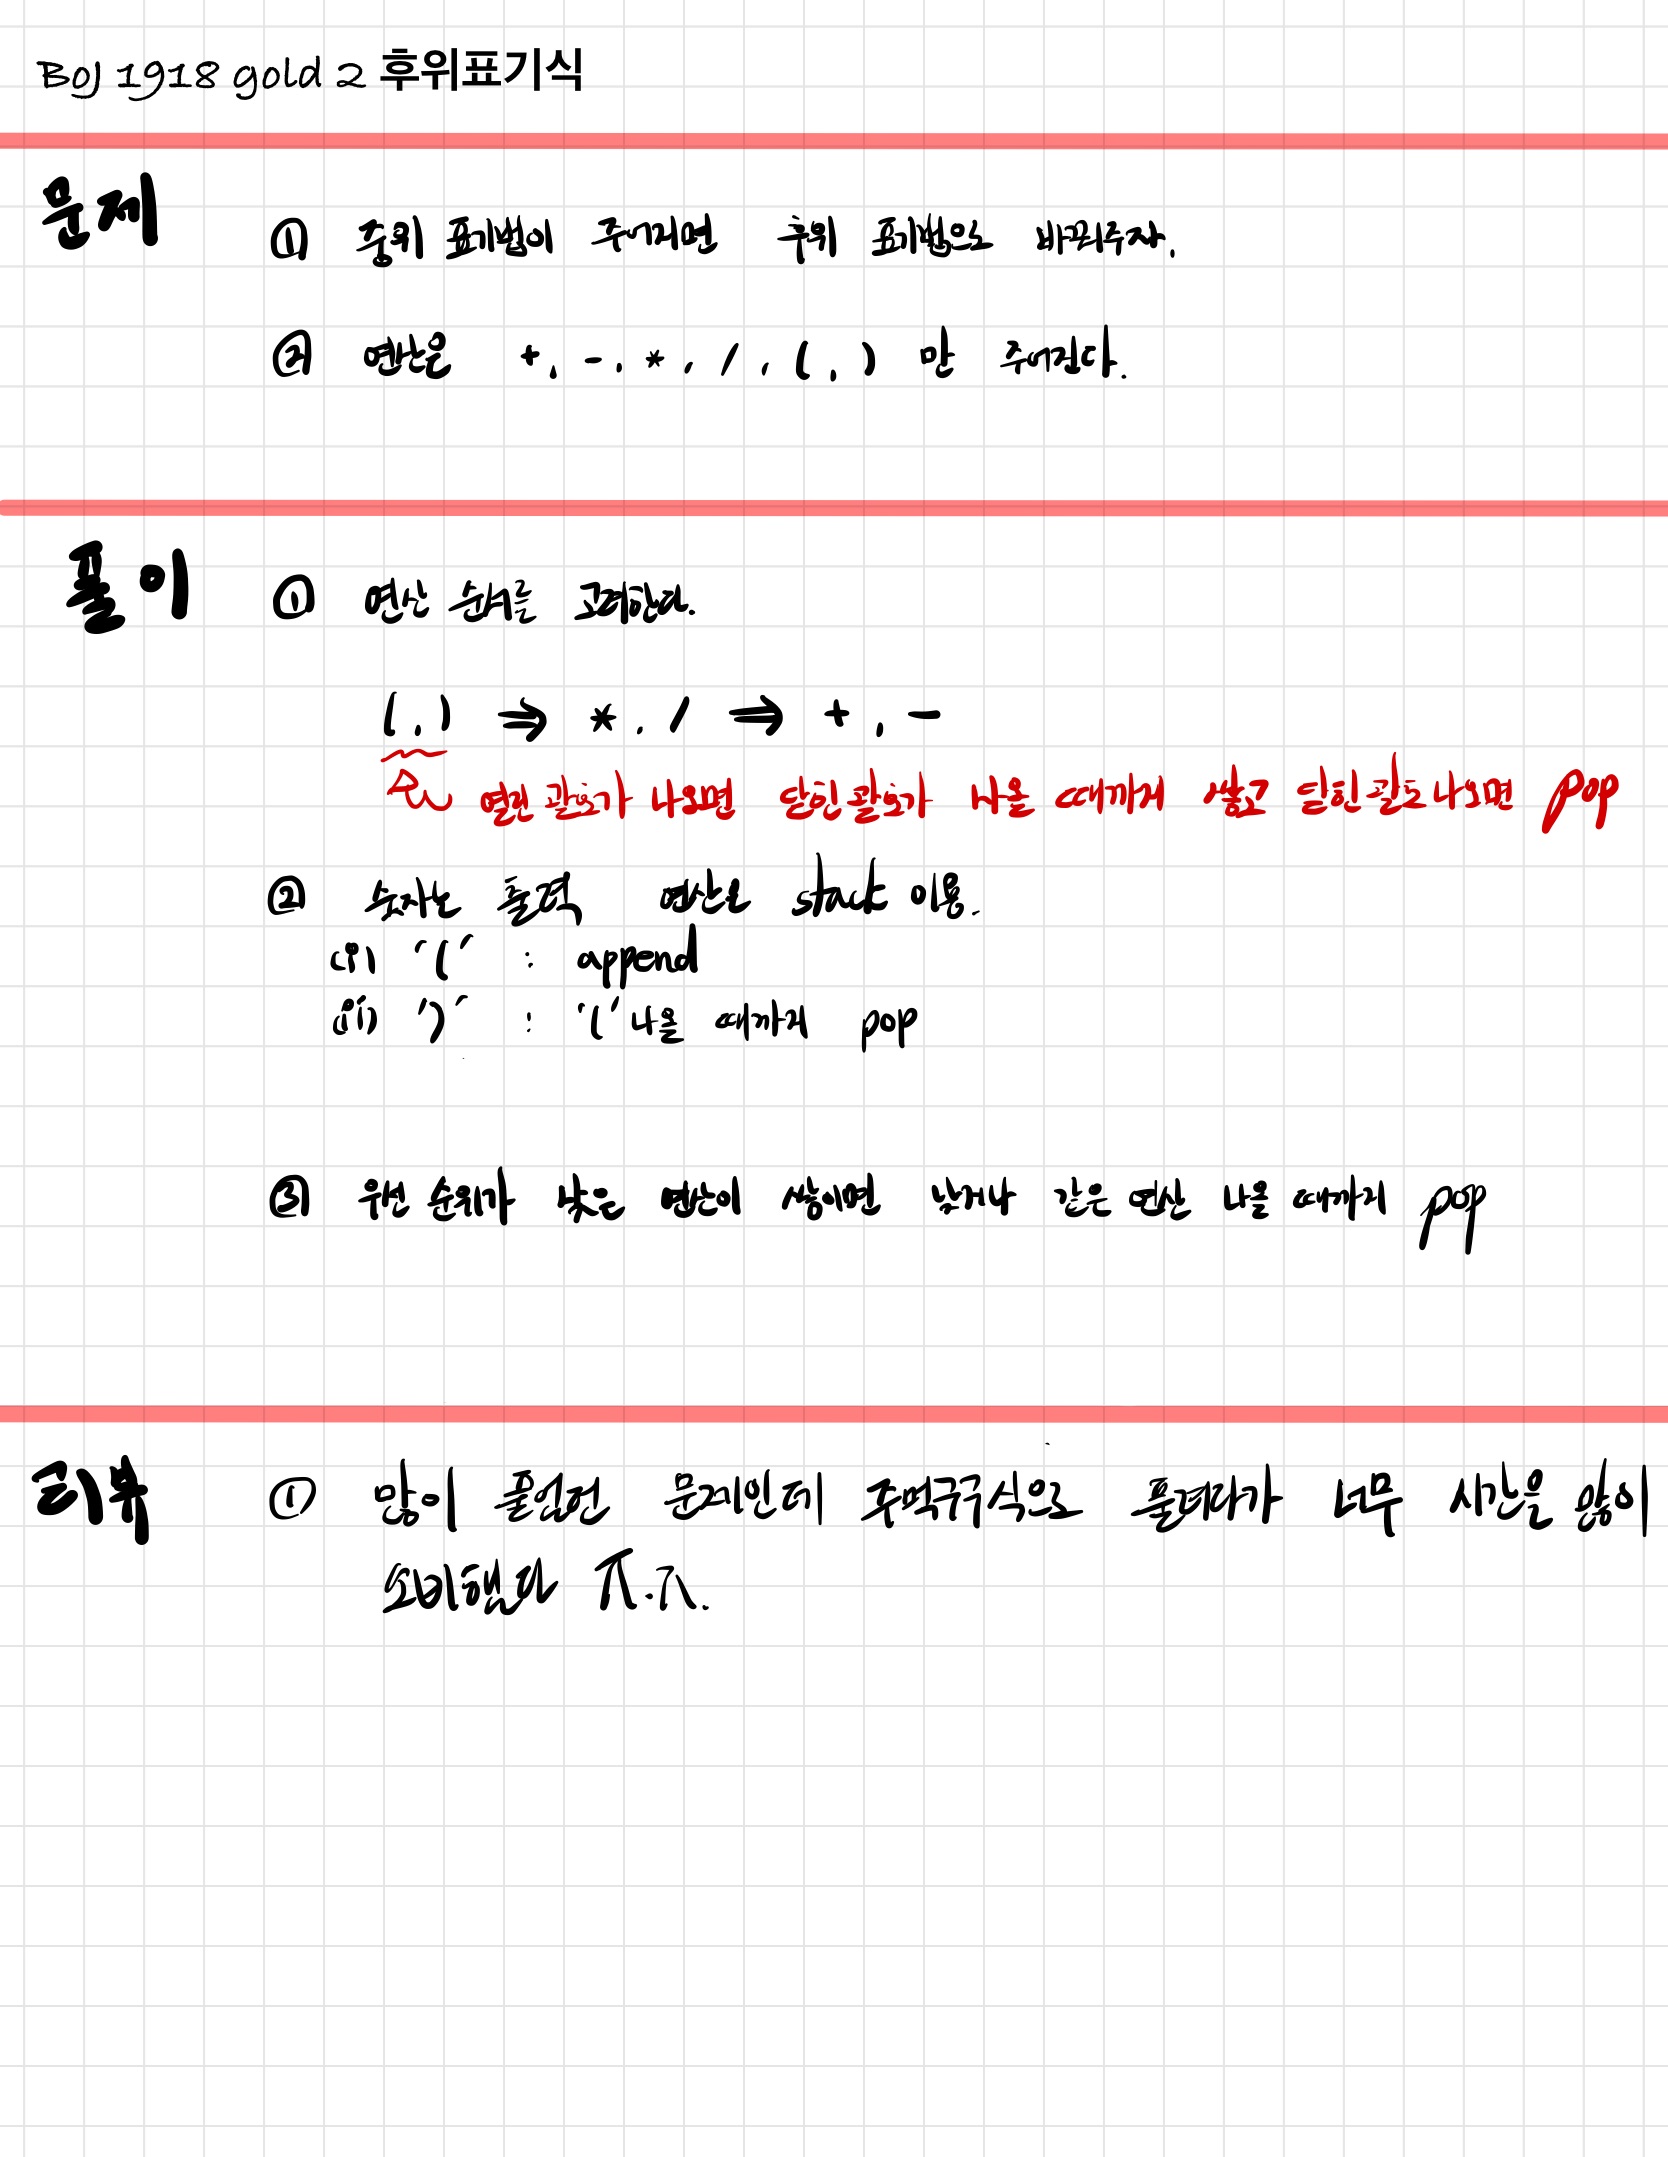 BOJ 1918 gold 2 후위표기식
문제
① 중위 표기법이 주어지면 후위 표기법으로 바꿔주자.
② 연산은 +, -, *, /, (, ) 만 주어진다.
풀이
① 연산 순서를 고려한다.
(, ) ⇒ *, / ⇒ +, -
열린 괄호가 나오면 닫힌 괄호가 나올 때까지 쌓고 닫힌 괄호 나오면 pop
② 숫자는 출력 연산은 stack 이용.
(i) '(' : append
(ii) ')' : '(' 나올 때까지 pop
③ 우선 순위가 낮은 연산이 쌓이면 낮거나 같은 연산 나올 때까지 pop
리뷰
① 많이 풀었던 문제인데 주먹구구식으로 풀려다가 너무 시간을 많이
소비했다 ㅠ.ㅠ.